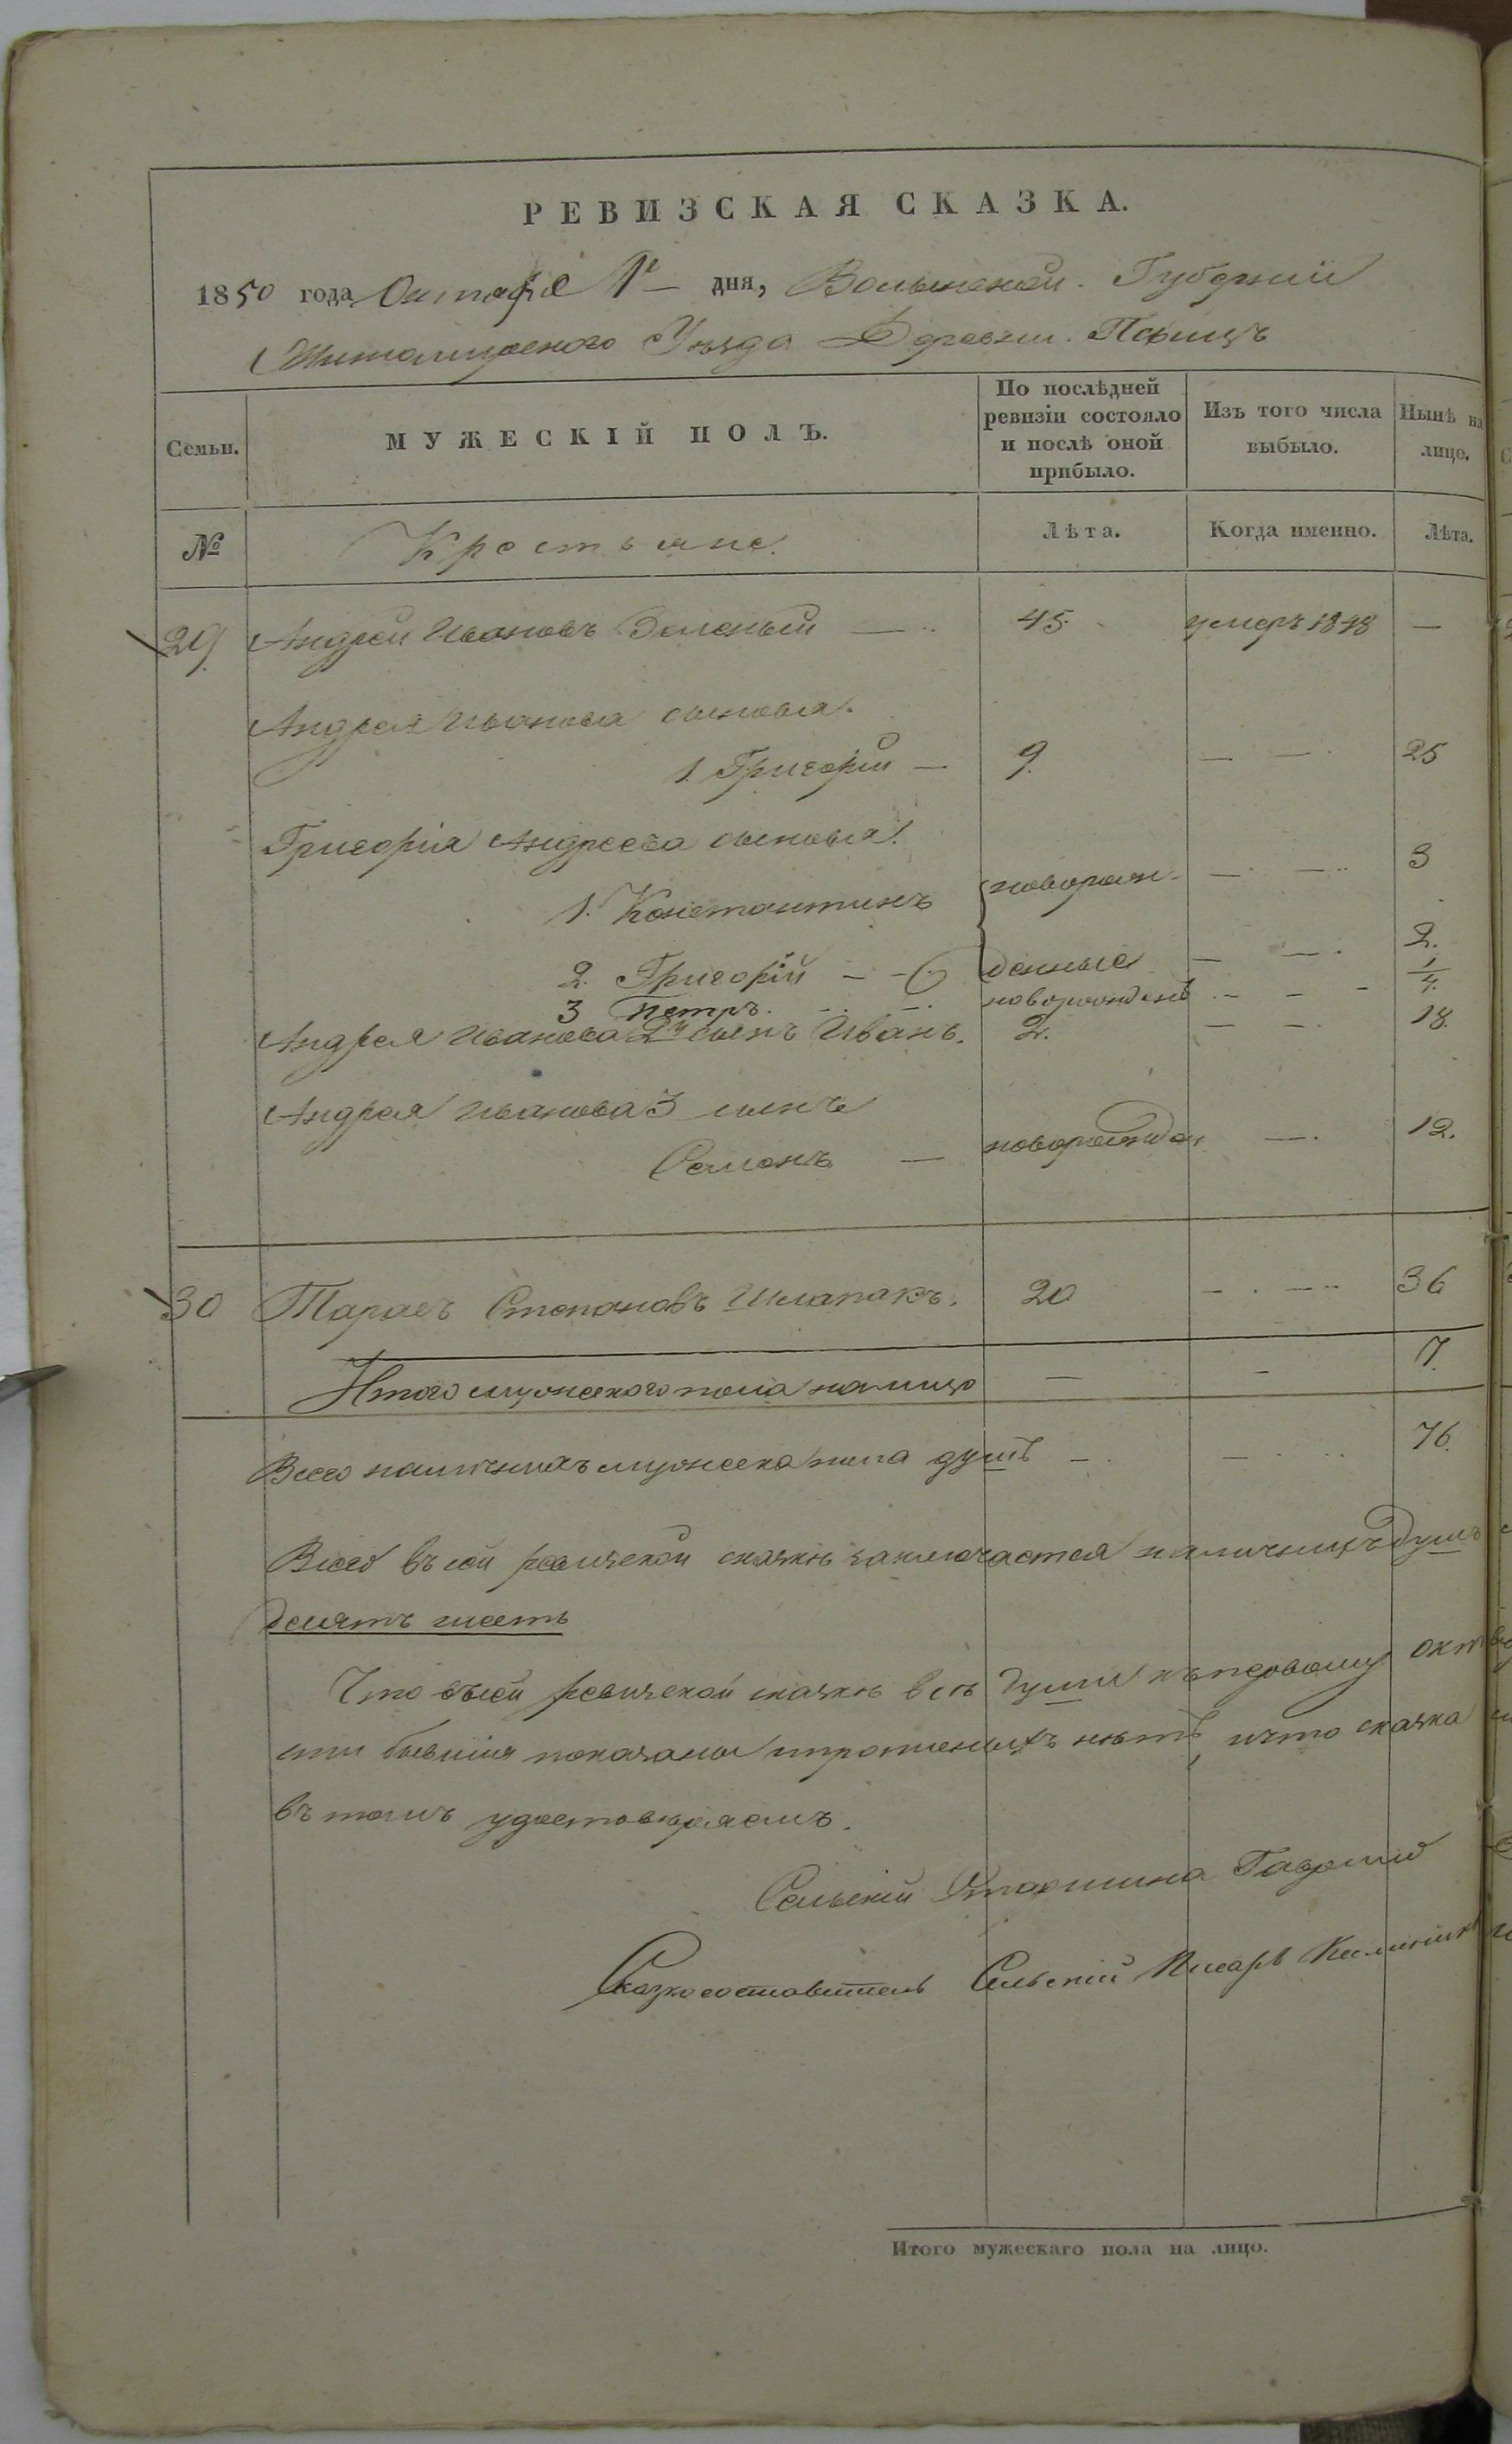 РЕВИЗСКАЯ СКАЗКА.
1850 года Октября 1го дня, Волынской Губернии
Житомирского Уезда Деревни
Семьи.
МУЖЕСКІЙ ПОЛЪ.
По послѣдней ревизіи состояло и послѣ оной прибыло.
Изъ того числа выбыло.
Нынѣ на лицо.
№
Крестьяне.
Лѣта.
Когда именно.
Лѣта.
29 Андрей Ивановъ Зеленый — 45. умеръ 1848 —
Андрея Иванова сыновья.
1. Григорій — 9. — — 25
Григорія Андреева сыновья.
1. Константинъ новорож- — — 3
2. Григорій — — денные — — 2.
3 Петръ. — — новорожденъ — — — 1/4.
Андрея Иванова 2й сынъ Иванъ. 2. — — 18.
Андрея Иванова 3 сынъ
Семенъ — новорожден — 12.
30 Тарасъ Степановъ Шлапакъ. 20 — — 36
Итого мужеского пола налицо — — 7.
Всего наличныхъ мужска пола душъ — — 76.
Всего въ сей ревизской сказкѣ заключается наличныхъ душъ
десятъ шесть
Что въ сей ревизской сказкѣ всѣ души къ первому окт
бывшія показаны и прописныхъ нѣтъ, и что сказка
въ томъ удостовѣряемъ.
Сельскій Старшина
Сказкосоставитель Сельскій Писарь
Итого мужескаго пола на лицо.